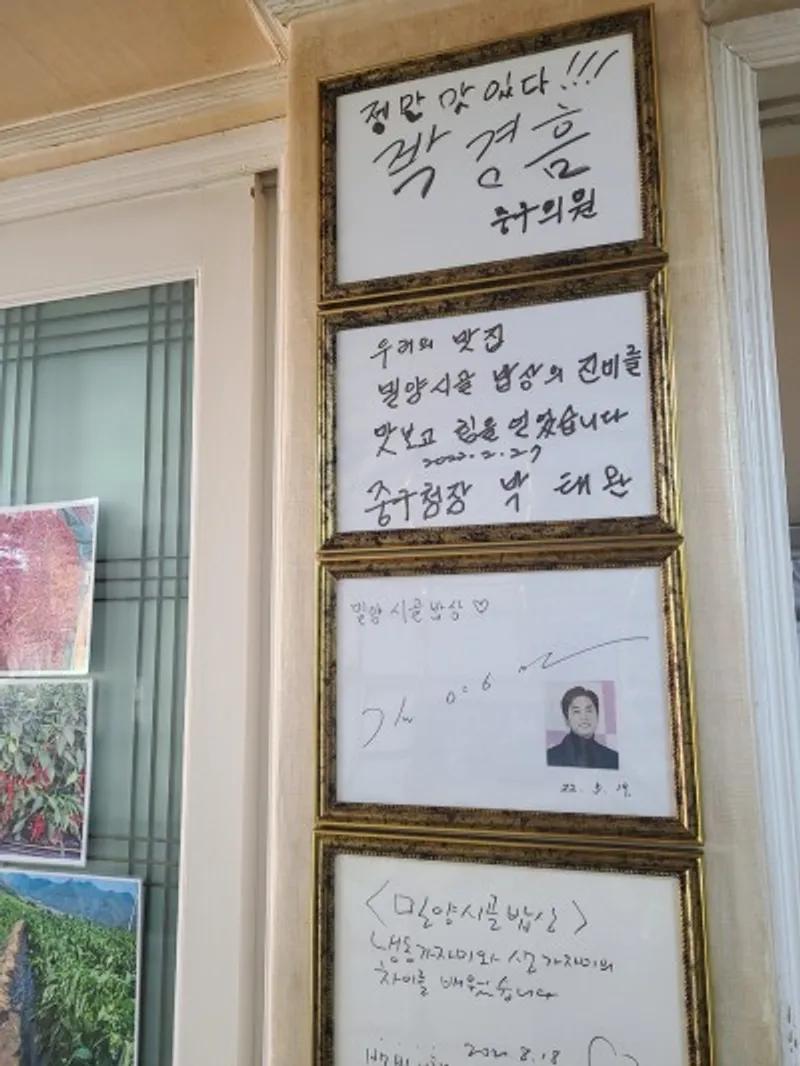 정말 맛있다!!!
박경흠
중구의원
우리의 맛집
밀양시골 밥상의 진미를
맛보고 힘을 얻었습니다
2022.2.27
중구청장 박태완
밀양시골밥상♡
22. 5. 19.
<밀양시골밥상>
냉동가자미와 생가자미의
차이를 배웠습니다
2021.8.18